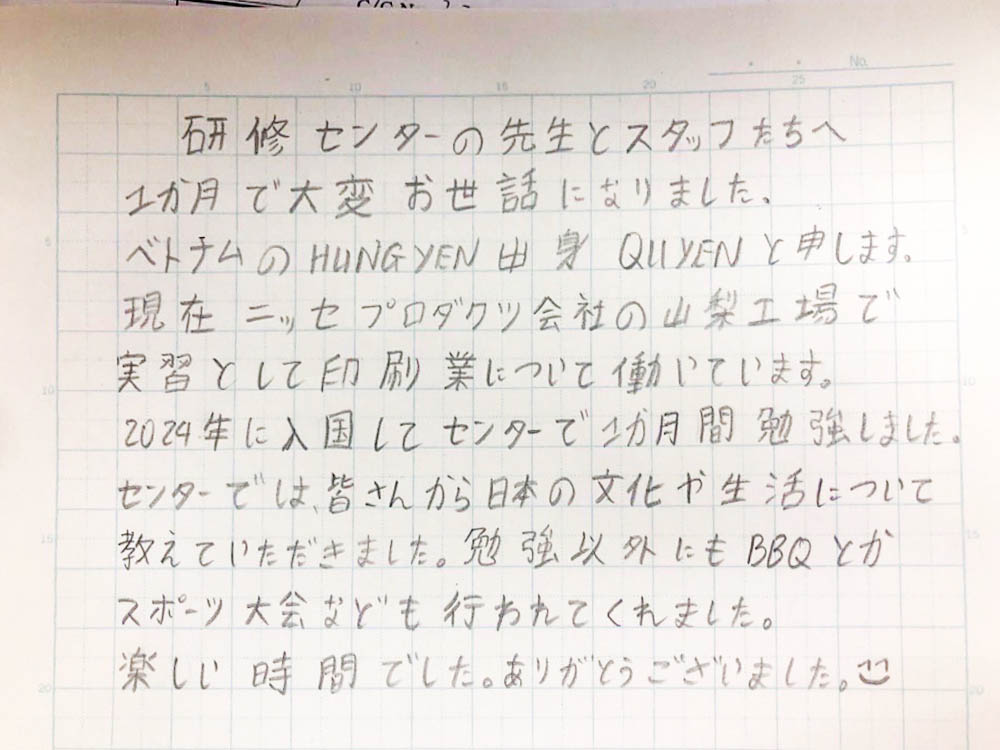 No.
5 10 15 20 25
研修センターの先生とスタッフたちへ
1か月で大変お世話になりました、
ベトナムのHUNGYEN出身 QUYENと申します。
現在ニッセプロダクツ会社の山梨工場で
実習として印刷業について働いています。
2024年に入国してセンターで1か月間勉強しました。
センターでは、皆さんから日本の文化や生活について
教えていただきました。勉強以外にもBBQとか
スポーツ大会なども行われてくれました。
楽しい時間でした。ありがとうございました。